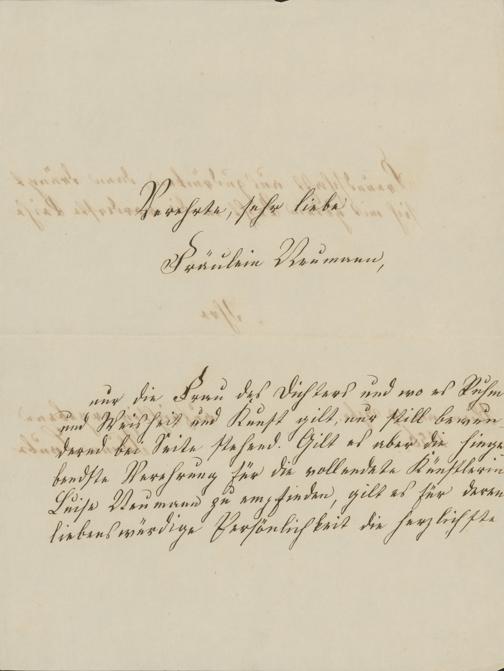 Verehrte, sehr liebe
Fräulein Neumann,
nur die Frau des Dichters und wo es Ruhm
und Weisheit und Kunst gilt, nur still bewun
dernd bei Seite stehend. Gilt es aber die hinge
bendste Verehrung für die vollendete Künstlerin
Luise Neumann zu empfinden, gilt es für deren
liebenswürdige Persönlichkeit die herzlichste